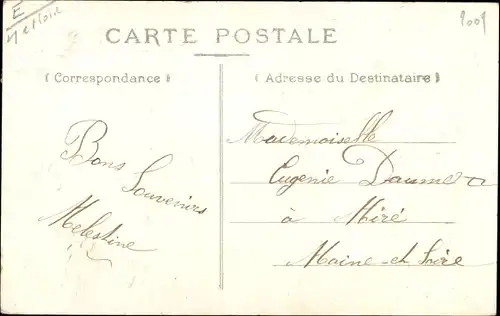 E
CARTE POSTALE
( Correspondance )
( Adresse du Destinataire )
Bons
Souvenirs
Melestine
Mademoiselle
Eugenie Daumer
à Miré
Maine et Loire